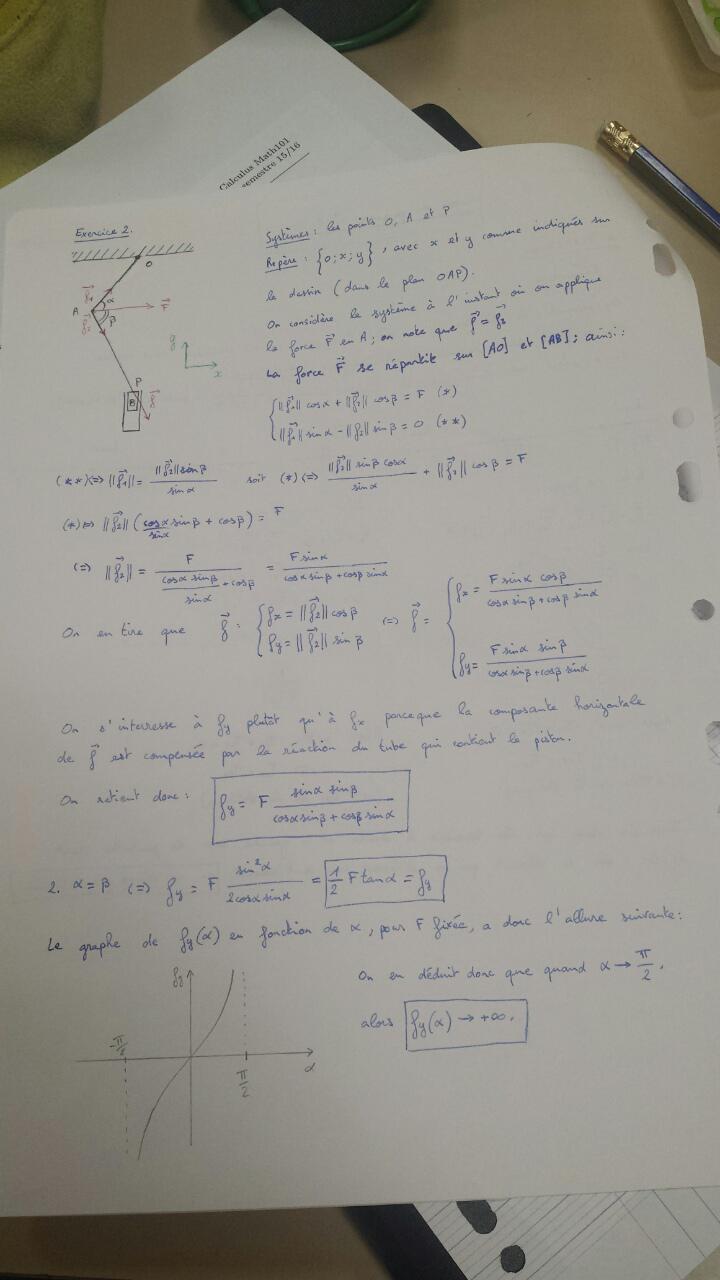 Calculus Math101
semestre 15/16
Exercice 2.
O
A
α
β
F⃗
f⃗₁
f⃗₂
P
B
y
x
Systèmes : les points O, A et P
Repère : {O; x; y}, avec x et y comme indiqués sur
le dessin (dans le plan OAP).
On considère le système à l'instant où on applique
la force F⃗ en A ; on note que f⃗ = f⃗₂
La force F⃗ se répartit sur [AO] et [AB] ; ainsi :
{ ||f⃗₁|| cosα + ||f⃗₂|| cosβ = F (*)
||f⃗₁|| sinα - ||f⃗₂|| sinβ = 0 (**)
(**) (=) ||f⃗₁|| = ||f⃗₂|| sinβ / sinα soit (*) (=) ||f⃗₂|| sinβ cosα / sinα + ||f⃗₂|| cosβ = F
(*) (=) ||f⃗₂|| (cosα sinβ / sinα + cosβ) = F
(=) ||f⃗₂|| = F / (cosα sinβ / sinα + cosβ) = F sinα / (cosα sinβ + cosβ sinα)
On en tire que f⃗ : { fx = ||f⃗₂|| cosβ (=) f⃗ = { fx = F sinα cosβ / (cosα sinβ + cosβ sinα)
fy = ||f⃗₂|| sinβ fy = F sinα sinβ / (cosα sinβ + cosβ sinα)
On s'interresse à fy plutôt qu'à fx parceque la composante horizontale
de f⃗ est compensée par la réaction du tube qui contient le piston.
On retient donc : fy = F sinα sinβ / (cosα sinβ + cosβ sinα)
2. α = β (=) fy = F sin²α / (2cosα sinα) = 1/2 F tanα = fy
Le graphe de fy(α) en fonction de α, pour F fixée, a donc l'allure suivante :
fy
-π/2
π/2
α
On en déduit donc que quand α → π/2,
alors fy(α) → +∞.